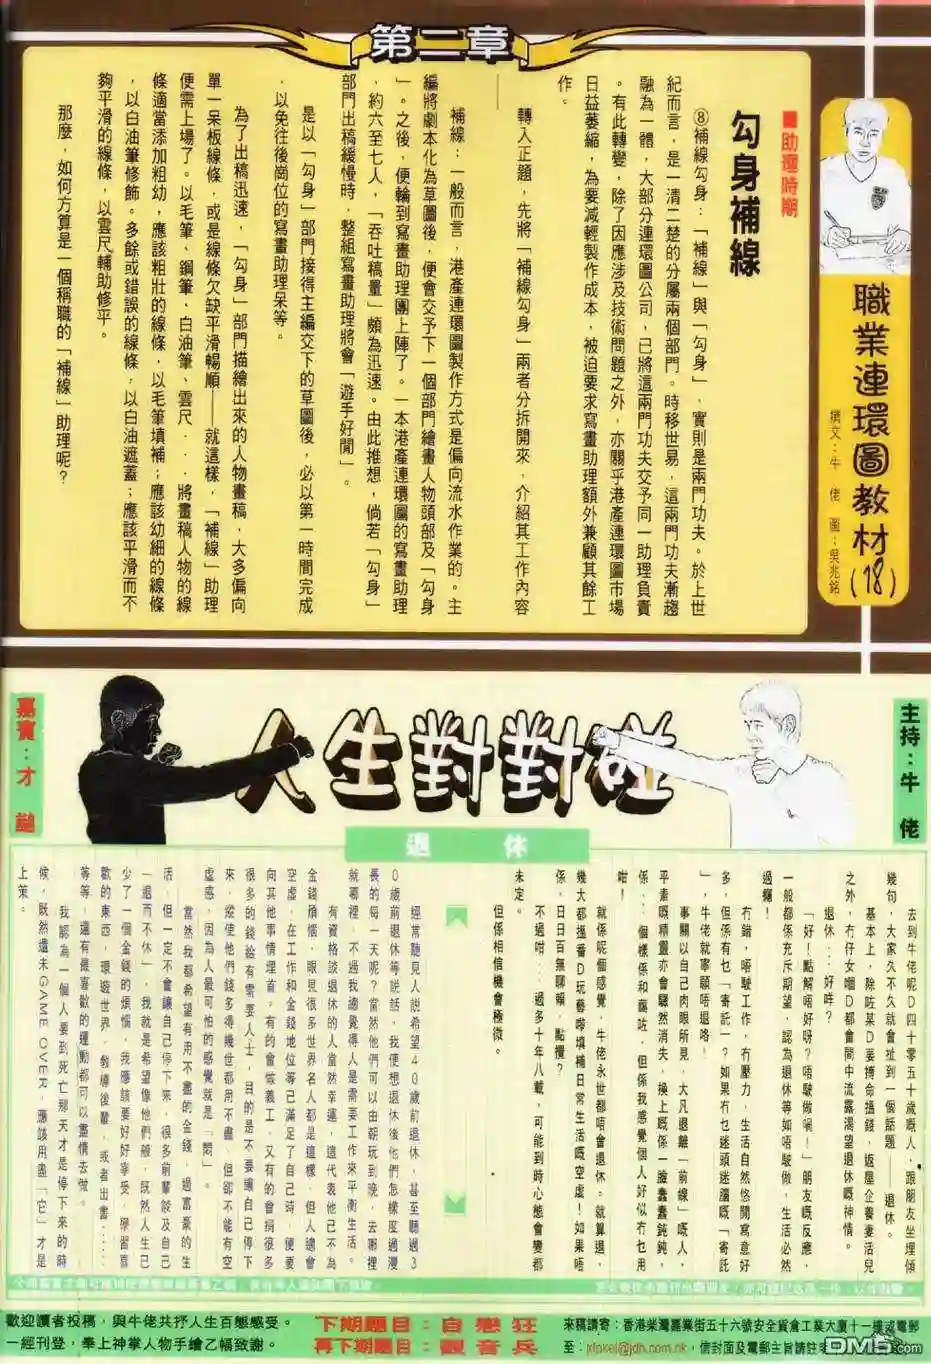 第二章
職業連環圖教材(18)
撰文：牛佬 圖：吳兆銘
■助理時期
勾身補線
⑧補線勾身：「補線」與「勾身」，實則是兩門功夫。於上世
紀而言，是一清二楚的分屬兩個部門。時移世易，這兩門功夫漸趨
融為一體，大部分連環圖公司，已將這兩門功夫交予同一助理負責
。有此轉變，除了因應涉及技術問題之外，亦關乎港產連環圖市場
日益萎縮，為要減輕製作成本，被迫要求寫畫助理額外兼顧其餘工
作。
轉入正題，先將「補線勾身」兩者分拆開來，介紹其工作內容
——
補線：一般而言，港產連環圖製作方式是偏向流水作業的。主
編將劇本化為草圖後，便會交予下一個部門繪畫人物頭部及「勾身
」。之後，便輪到寫畫助理團上陣了。一本港產連環圖的寫畫助理
，約六至七人，「吞吐稿量」頗為迅速。由此推想，倘若「勾身」
部門出稿緩慢時，整組寫畫助理將會「遊手好閒」。
是以「勾身」部門接得主編交下的草圖後，必以第一時間完成
，以免往後崗位的寫畫助理呆等。
為了出稿迅速，「勾身」部門描繪出來的人物畫稿，大多偏向
單一呆板線條，或是線條欠缺平滑暢順——就這樣，「補線」助理
便需上場了。以毛筆、鋼筆、白油筆、雲尺...將畫稿人物的線
條適當添加粗幼，應該粗壯的線條，以毛筆填補；應該幼細的線條
，以白油筆修飾。多餘或錯誤的線條，以白油遮蓋；應該平滑而不
夠平滑的線條，以雲尺輔助修平。
那麼，如何方算是一個稱職的「補線」助理呢？
主持：牛佬
人生對對碰
嘉賓：才謎
退休
去到牛佬呢D四十零五十歲嘅人，跟朋友坐埋傾
幾句，大家久不久就會扯到一個話題——退休。
基本上，除咗某D要搏命搵錢，返屋企養妻活兒
之外，冇仔女嗰D都會間中流露渴望退休嘅神情。
退休...好咩？
「好！點解唔好呀？唔駛做喎！」朋友嘅反應，
一般都係充斥期望，認為退休等如唔駛做，生活必然
過癮！
冇錯，唔駛工作，冇壓力，生活自然悠閒寫意好
多，但係有乜「寄託」？如果冇乜迷頭迷腦嘅「寄託
」，牛佬就寧願唔退咯！
事關以自己肉眼所見，大凡退離「前線」嘅人，
平素嘅精靈亦會驟然消失，換上嘅係一臉蠢蠢鈍鈍，
係...個樣係和藹咗，但係我感覺個人好似冇乜用
咁！
就係呢個感覺，牛佬永世都唔會退休。就算退，
幾大都搵番D玩藝嚟填補日常生活嘅空虛！如果唔
係，日日百無聊賴，點攪？
不過咁...過多十年八載，可能到時心態會變都
未定。
但係相信機會極微。
經常聽見人說希望40歲前退休，甚至聽過3
0歲前退休等說話，我便想退休後他們怎樣度過漫
長的每一天呢？當然他們可以由朝玩到晚，去那裡
就哪裡，不過我總覺得人是需要工作來平衡生活。
有資格談退休的人當然幸運，這代表他已不為
金錢煩惱，眼見很多世界名人都是這樣，但人總會
空虛，在工作和金錢地位等己滿足了自己時，便要
向其他事情埋首，有的會做義工，又有的會捐很多
很多的錢給有需要人士，目的是不要讓自己停下
來，縱使他們錢多得幾世都用不盡，但卻不能有空
虛感，因為人最可怕的感覺就是「悶」。
當然我都希望有用不盡的金錢，過富豪的生
活，但一定不會讓自己停下來，很多前輩談及自己
「退而不休」，我就是希望像他們般，既然人生已
少了一個金錢的煩惱，我應該要好好享受，學習喜
歡的東西，環遊世界，教導後輩，或者出書......
等等，還有最喜歡的運動都可以盡情去做。
我認為一個人要到死亡那天才是停下來的時
候，既然還未GAME OVER，應該用盡「它」才是
上策。
歡迎讀者投稿，與牛佬共抒人生百態感受。
一經刊登，奉上神掌人物手繪乙幅致謝。
下期題目：自戀狂
再下期題目：觀音兵
來稿請寄：香港柴灣嘉業街五十六號安全貨倉工業大廈十一樓或電郵
至：jdpkei@jdh.com.hk，信封面及電郵主旨請註明